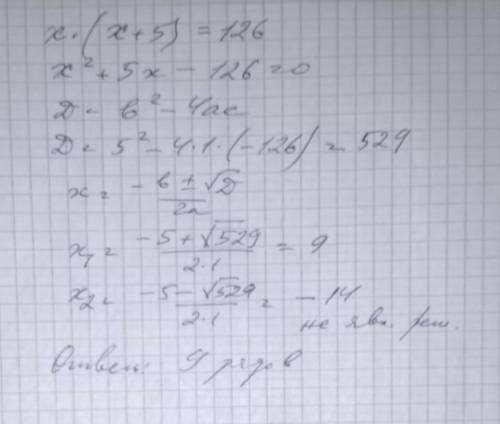 x·(x+5) = 126
x² + 5x − 126 = 0
Д = в² − 4ас
Д = 5² − 4·1·(−126) = 529
x = −в ± √Д / 2а
x₁ = −5 + √529 / 2·1 = 9
x₂ = −5 − √529 / 2·1 = −14
не явл. реш.
Ответ: 9 рядов